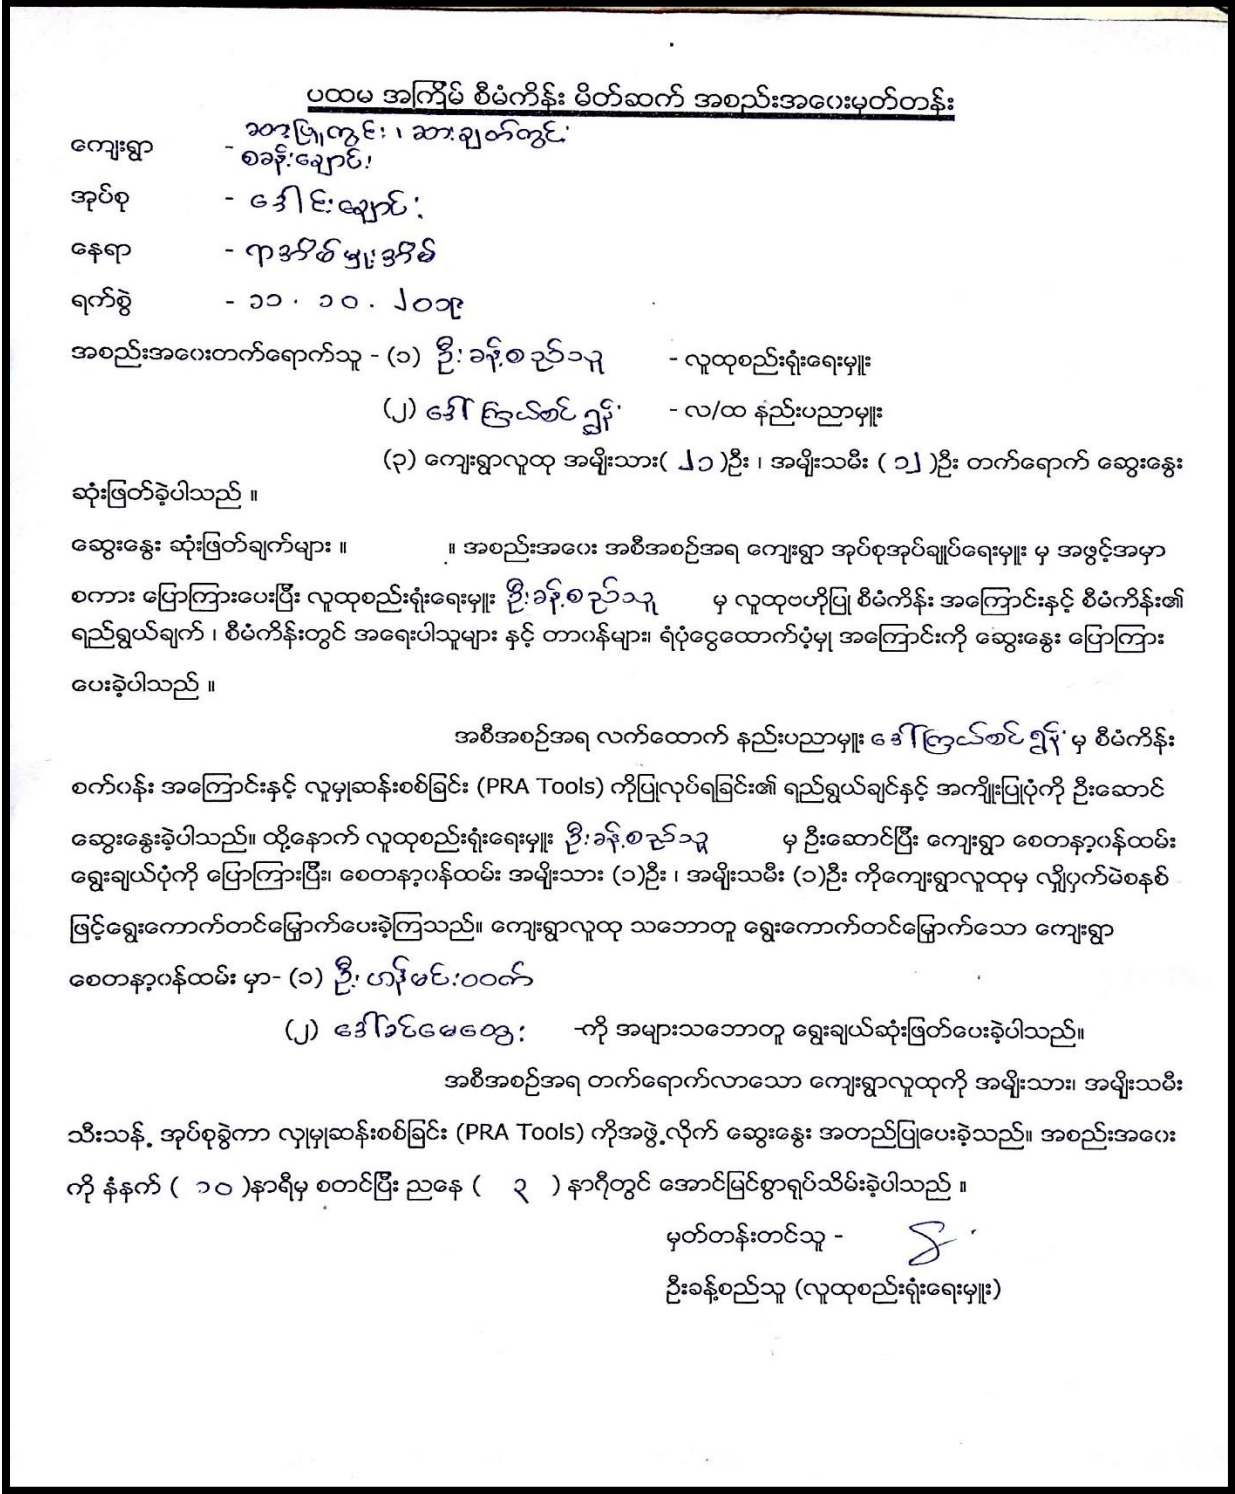 ပထမ အကြိမ် စီမံကိန်း မိတ်ဆက် အစည်းအဝေးမှတ်တန်း
ကျေးရွာ - ဆားဖြူကွင်း ၊ ဆားချတ်တွင်း
စခန်းချောင်း
အုပ်စု - ဒေါင်းချောင်း
နေရာ - ရာအိမ်မှူးအိမ်
ရက်စွဲ - ၁၁ . ၁၀ . ၂၀၁၉
အစည်းအဝေးတက်ရောက်သူ - (၁) ဦးခန့်စည်သူ - လူထုစည်းရုံးရေးမှူး
(၂) ဒေါ်ကြယ်စင်ရွှန်း - လ/ထ နည်းပညာမှူး
(၃) ကျေးရွာလူထု အမျိုးသား( ၂၁ )ဦး ၊ အမျိုးသမီး ( ၁၂ )ဦး တက်ရောက် ဆွေးနွေး
ဆုံးဖြတ်ခဲ့ပါသည် ။
ဆွေးနွေး ဆုံးဖြတ်ချက်များ ။ ။ အစည်းအဝေး အစီအစဉ်အရ ကျေးရွာ အုပ်စုအုပ်ချုပ်ရေးမှူး မှ အဖွင့်အမှာ
စကား ပြောကြားပေးပြီး လူထုစည်းရုံးရေးမှူး ဦးခန့်စည်သူ မှ လူထုဗဟိုပြု စီမံကိန်း အကြောင်းနှင့် စီမံကိန်း၏
ရည်ရွယ်ချက် ၊ စီမံကိန်းတွင် အရေးပါသူများ နှင့် တာဝန်များ၊ ရံပုံငွေထောက်ပံ့မှု အကြောင်းကို ဆွေးနွေး ပြောကြား
ပေးခဲ့ပါသည် ။
အစီအစဉ်အရ လက်ထောက် နည်းပညာမှူး ဒေါ်ကြယ်စင်ရွှန်း မှ စီမံကိန်း
စက်ဝန်း အကြောင်းနှင့် လူမှုဆန်းစစ်ခြင်း (PRA Tools) ကိုပြုလုပ်ရခြင်း၏ ရည်ရွယ်ချင်နှင့် အကျိုးပြုပုံကို ဦးဆောင်
ဆွေးနွေးခဲ့ပါသည်။ ထို့နောက် လူထုစည်းရုံးရေးမှူး ဦးခန့်စည်သူ မှ ဦးဆောင်ပြီး ကျေးရွာ စေတနာ့ဝန်ထမ်း
ရွေးချယ်ပုံကို ပြောကြားပြီး၊ စေတနာ့ဝန်ထမ်း အမျိုးသား (၁)ဦး ၊ အမျိုးသမီး (၁)ဦး ကိုကျေးရွာလူထုမှ လျှို့ဝှက်မဲစနစ်
ဖြင့်ရွေးကောက်တင်မြှောက်ပေးခဲ့ကြသည်။ ကျေးရွာလူထု သဘောတူ ရွေးကောက်တင်မြှောက်သော ကျေးရွာ
စေတနာ့ဝန်ထမ်း မှာ- (၁) ဦးဟန်မင်းဝဝက်
(၂) ဒေါ်ခင်မေထွေး -ကို အများသဘောတူ ရွေးချယ်ဆုံးဖြတ်ပေးခဲ့ပါသည်။
အစီအစဉ်အရ တက်ရောက်လာသော ကျေးရွာလူထုကို အမျိုးသား၊ အမျိုးသမီး
သီးသန့် အုပ်စုခွဲကာ လူမှုဆန်းစစ်ခြင်း (PRA Tools) ကိုအဖွဲ့လိုက် ဆွေးနွေး အတည်ပြုပေးခဲ့သည်။ အစည်းအဝေး
ကို နံနက် ( ၁၀ )နာရီမှ စတင်ပြီး ညနေ ( ၃ ) နာရီတွင် အောင်မြင်စွာရုပ်သိမ်းခဲ့ပါသည် ။
မှတ်တန်းတင်သူ -
ဦးခန့်စည်သူ (လူထုစည်းရုံးရေးမှူး)